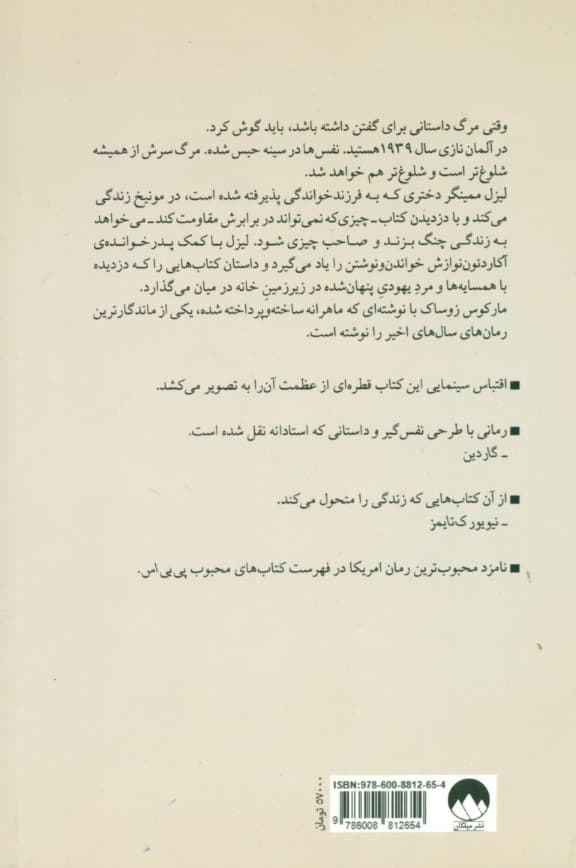 وقتی مرگ داستانی برای گفتن داشته باشد، باید گوش کرد.
در آلمان نازی سال ۱۹۳۹ هستید. نفس‌ها در سینه حبس شده. مرگ سرش از همیشه
شلوغ‌تر است و شلوغ‌تر هم خواهد شد.
لیزل ممینگر دختری که به فرزندخواندگی پذیرفته شده است، در مونیخ زندگی
می‌کند و با دزدیدن کتاب ـ چیزی‌که نمی‌تواند در برابرش مقاومت کند ـ می‌خواهد
به زندگی چنگ بزند و صاحب چیزی شود. لیزل با کمک پدرخوانده‌ی
آکاردئون‌نوازش خواندن‌ونوشتن را یاد می‌گیرد و داستان کتاب‌هایی را که دزدیده
با همسایه‌ها و مردِ یهودیِ پنهان‌شده در زیرزمینِ خانه در میان می‌گذارد.
مارکوس زوساک با نوشته‌ای که ماهرانه ساخته‌وپرداخته شده، یکی از ماندگارترین
رمان‌های سال‌های اخیر را نوشته است.
■ اقتباس سینمایی این کتاب قطره‌ای از عظمت آن‌را به تصویر می‌کشد.
■ رمانی با طرحی نفس‌گیر و داستانی که استادانه نقل شده است.
ـ گاردین
■ از آن کتاب‌هایی که زندگی را متحول می‌کند.
ـ نیویورک‌تایمز
■ نامزد محبوب‌ترین رمان امریکا در فهرست کتاب‌های محبوب پی‌بی‌اس.
۵۷۰۰۰ تومان
ISBN:978-600-8812-65-4
9 786008 812654
نشر میلکان